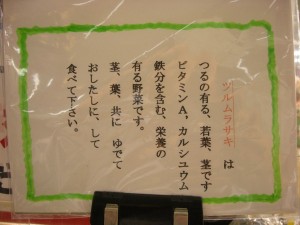 ツルムラサキ は
つるの有る、若葉、茎です
ビタミンA，カルシュウム
鉄分を含む、栄養の
有る野菜です。
茎、葉、共に ゆでて
おしたしに、して
食べて下さい。